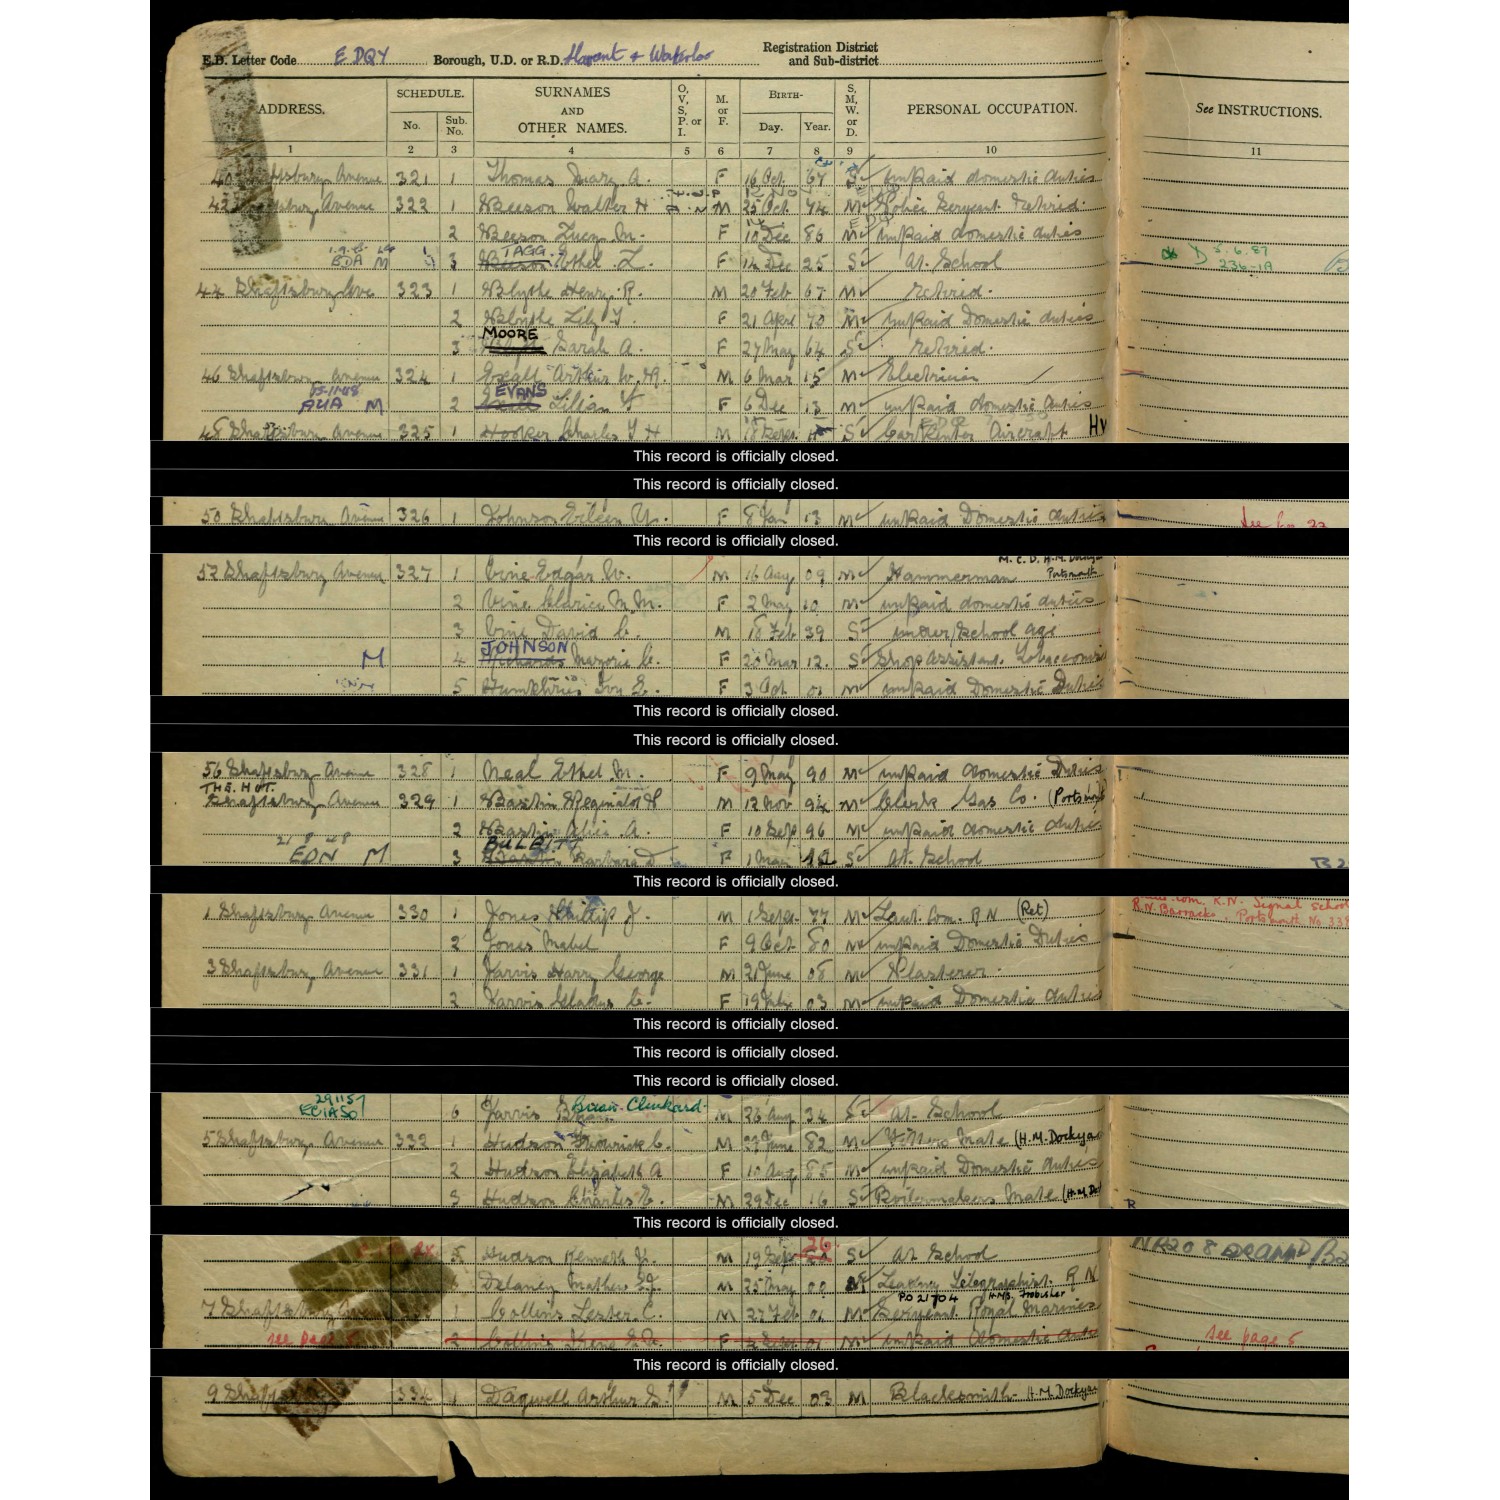 E.D. Letter Code EDQY Borough, U.D. or R.D. Havant & Waterloo Registration District and Sub-district
ADDRESS. SCHEDULE. No. Sub. No. SURNAMES AND OTHER NAMES. O, V, S, P. or I. M. or F. BIRTH- Day. Year. S, M, W, or D. PERSONAL OCCUPATION. See INSTRUCTIONS.
1 2 3 4 5 6 7 8 9 10 11
40 Shaftsbury Avenue 321 1 Thomas Mary A. F 16 Oct 67 S unpaid domestic duties
42 Shaftsbury Avenue 322 1 Beeson Walter H M 25 Oct 74 M Police Sergeant Retired.
2 Beeson Lucy M. F 10 Dec 86 M unpaid domestic duties
BDA M 3 Beeson TAGG. Ethel L. F 14 Dec 25 S At School D 5.6.87 236-1A
44 Shaftsbury Ave 323 1 Blythe Henry R. M 20 Feb 67 M retired.
2 Blythe Lily F 21 April 70 M unpaid Domestic duties
3 MOORE Sarah A. F 27 May 64 S retired.
46 Shaftsbury Avenue 324 1 Arthur W. M 6 Mar 15 M Electrician
AUA M 2 EVANS Lilian F 6 Dec 13 M unpaid domestic duties
48 Shaftsbury Avenue 325 1 Hooker Charles H M 18 Sept S Carpenter Aircraft HW
This record is officially closed.
This record is officially closed.
50 Shaftsbury Avenue 326 1 Johnson Eileen F 8 Jan 13 M unpaid Domestic duties
This record is officially closed.
52 Shaftsbury Avenue 327 1 Vine Edgar W. M 16 Aug 09 M Hammerman M.C.D. H.M. Dockyard Portsmouth
2 Vine Clarice M.M. F 2 May 10 M unpaid domestic duties
3 Vine David C. M 18 Feb 39 S under school age
M 4 Richards JOHNSON Marjorie C. F 23 Mar 12 S Shop Assistant. Tobacconist
5 Humphries Ivy E. F 3 Oct 01 M unpaid Domestic Duties
This record is officially closed.
This record is officially closed.
56 Shaftsbury Avenue 328 1 Neal Ethel M. F 9 May 90 M unpaid domestic Duties
THE HUT. Shaftsbury Avenue 329 1 Bastin Reginald M 12 Nov 94 M Clerk Gas Co. (Portsmouth
2 Bastin Alice A. F 10 Sep 96 M unpaid domestic duties
EDN M 3 Bastin Barbara D F 1 Mar S At School
This record is officially closed.
1 Shaftsbury Avenue 330 1 Jones Phillip J. M 1 Sept 77 M Lieut. Com. R N (Ret) Com. R.N. Signal School R.N. Barracks. Portsmouth No.
2 Jones Mabel F 9 Oct 80 M unpaid Domestic Duties
3 Shaftsbury Avenue 331 1 Jarvis Harry George M 21 June 08 M Plasterer.
2 Jarvis Gladys C. F 19 July 03 M unpaid Domestic duties
This record is officially closed.
This record is officially closed.
This record is officially closed.
291157 ECIASO 6 Jarvis Brian Clinkard M 26 Aug 34 S At School
5 Shaftsbury Avenue 332 1 Hudson Frederick C. M 27 June 82 M Fitters Mate (H.M. Dockyard
2 Hudson Elizabeth A F 10 Aug 85 M unpaid Domestic duties
3 Hudson Charles E. M 29 Dec 16 S Boilermakers Mate (H.M. Dock R
This record is officially closed.
5 Hudson Kenneth M 19 Sept 26 S At School
Delaney Mathew M 25 May 00 M Leading Telegraphist. R N
7 Shaftsbury Avenue 1 Collins Lester C. M 27 Feb 01 M PO 21704 H.M.S. Frobisher Sergeant Royal Marines
see page 5 2 Collins Irene F 01 M unpaid domestic duties see page 5
This record is officially closed.
9 Shaftsbury 334 1 Dagwell Arthur M 5 Dec 03 M Blacksmith H.M. Dockyard